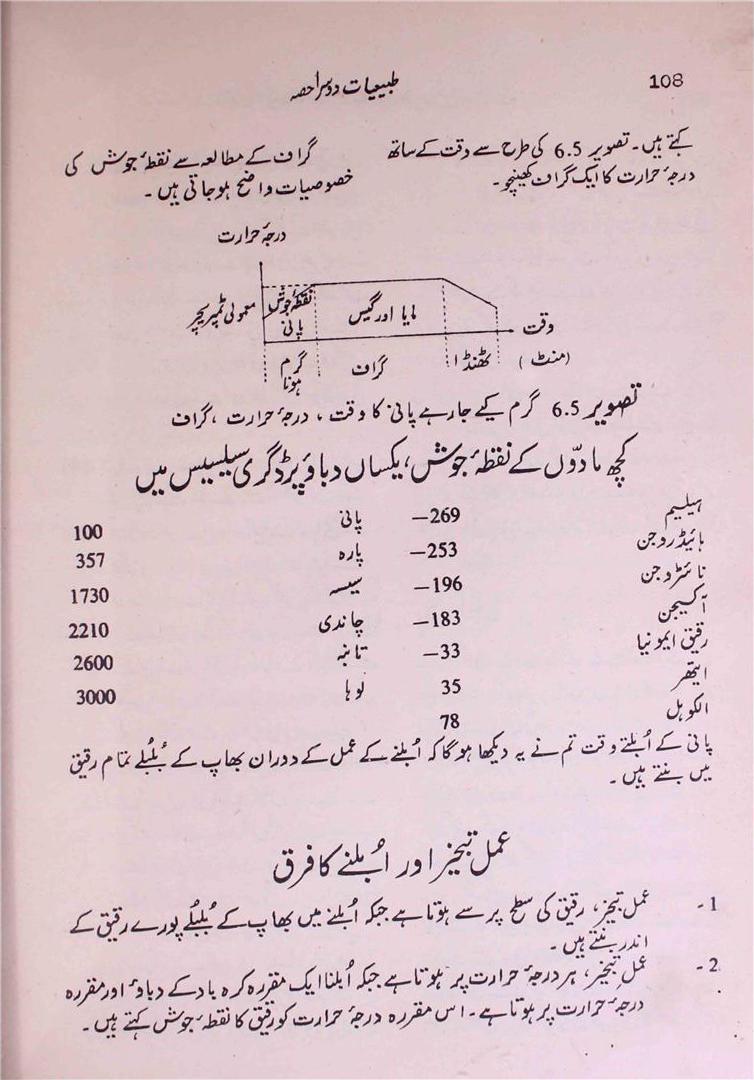 108
طبیعیات دوسرا حصہ
کہتے ہیں۔ تصویر 6.5 کی طرح سے وقت کے ساتھ
درجۂ حرارت کا ایک گراف کھینچو۔
گراف کے مطالعہ سے نقطۂ جوش کی
خصوصیات واضح ہو جاتی ہیں۔
درجۂ حرارت
معمولی ٹمپریچر
نقطۂ جوش
پانی
مایا اور گیس
وقت
(منٹ)
گرم
ہونا
گراف
ٹھنڈا
تصویر 6.5 گرم کیے جارہے پانی کا وقت، درجۂ حرارت، گراف
کچھ مادّوں کے نقطۂ جوش، یکساں دباؤ پر ڈگری سیلسیس میں
ہیلیم −269 پانی 100
ہائیڈروجن −253 پارہ 357
نائٹروجن −196 سیسہ 1730
آکسیجن −183 چاندی 2210
رقیق ایمونیا −33 تانبہ 2600
ایتھر 35 لوہا 3000
الکوہل 78
پانی کے اُبلتے وقت تم نے یہ دیکھا ہوگا کہ اُبلنے کے عمل کے دوران بھاپ کے بُلبُلے تمام رقیق
میں بنتے ہیں۔
عمل تبخیر اور اُبلنے کا فرق
1۔ عمل تبخیر، رقیق کی سطح پر سے ہوتا ہے جبکہ اُبلنے میں بھاپ کے بُلبُلے پورے رقیق کے
اندر بنتے ہیں۔
2۔ عمل تبخیر، ہر درجۂ حرارت پر ہوتا ہے جبکہ اُبلنا ایک مقررہ کرہ باد کے دباؤ اور مقررہ
درجۂ حرارت پر ہوتا ہے۔ اس مقررہ درجۂ حرارت کو رقیق کا نقطۂ جوش کہتے ہیں۔